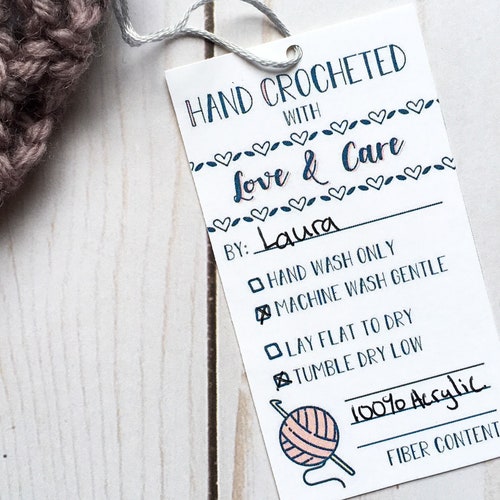 HAND CROCHETED
WITH
Love & Care
BY: Laura
HAND WASH ONLY
MACHINE WASH GENTLE
LAY FLAT TO DRY
TUMBLE DRY LOW
100% Acrylic
FIBER CONTENT